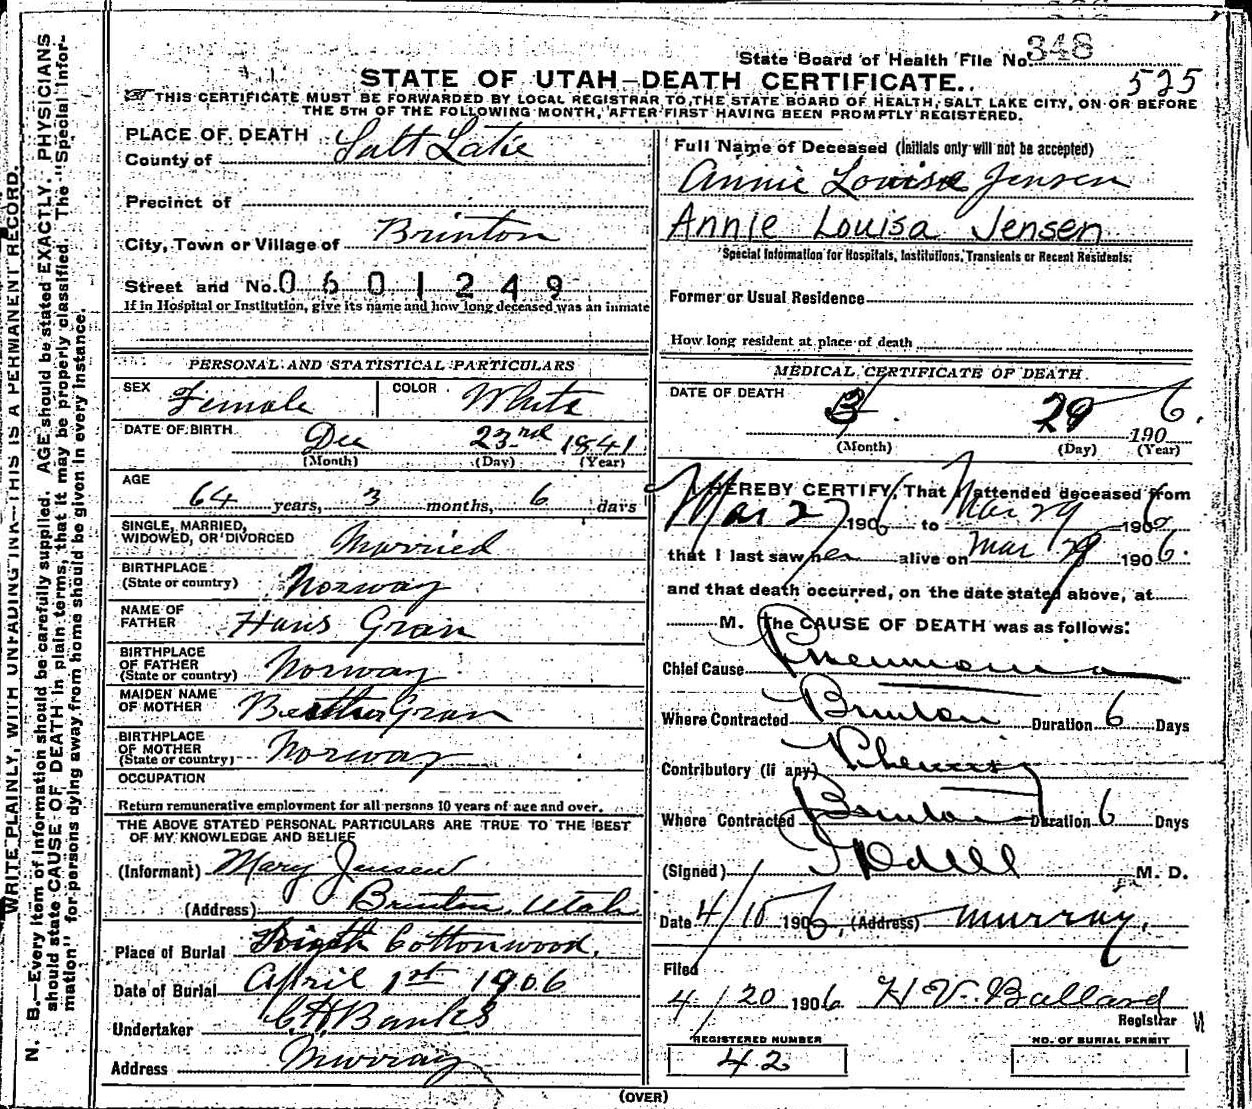 State Board of Health File No. 348
525
STATE OF UTAH—DEATH CERTIFICATE.
THIS CERTIFICATE MUST BE FORWARDED BY LOCAL REGISTRAR TO THE STATE BOARD OF HEALTH, SALT LAKE CITY, ON OR BEFORE
THE 5TH OF THE FOLLOWING MONTH, AFTER FIRST HAVING BEEN PROMPTLY REGISTERED.
WRITE PLAINLY, WITH UNFADING INK—THIS IS A PERMANENT RECORD.
N. B.—Every item of information should be carefully supplied. AGE should be stated EXACTLY. PHYSICIANS
should state CAUSE OF DEATH in plain terms, that it may be properly classified. The "Special Infor-
mation" for persons dying away from home should be given in every instance.
PLACE OF DEATH
County of Salt Lake
Precinct of
City, Town or Village of Brinton
Street and No. 0601249
If in Hospital or Institution, give its name and how long deceased was an inmate
PERSONAL AND STATISTICAL PARTICULARS
SEX Female COLOR White
DATE OF BIRTH Dec 23rd 1841
(Month) (Day) (Year)
AGE
64 years, 3 months, 6 days
SINGLE, MARRIED,
WIDOWED, OR DIVORCED Married
BIRTHPLACE
(State or country) Norway
NAME OF
FATHER Hans Gran
BIRTHPLACE
OF FATHER
(State or country) Norway
MAIDEN NAME
OF MOTHER Gran
BIRTHPLACE
OF MOTHER
(State or country) Norway
OCCUPATION
Return remunerative employment for all persons 10 years of age and over.
THE ABOVE STATED PERSONAL PARTICULARS ARE TRUE TO THE BEST
OF MY KNOWLEDGE AND BELIEF
(Informant) Mary Jensen
(Address) Brinton, Utah
Place of Burial Cottonwood.
Date of Burial April 1st 1906
Undertaker Banks
Address Murray
Full Name of Deceased (Initials only will not be accepted)
Annie Louisa Jensen
Annie Louisa Jensen
Special Information for Hospitals, Institutions, Transients or Recent Residents:
Former or Usual Residence
How long resident at place of death
MEDICAL CERTIFICATE OF DEATH
DATE OF DEATH
3 29 1906.
(Month) (Day) (Year)
I HEREBY CERTIFY, That I attended deceased from
Mar 27 1906 to Mar 29 1906
that I last saw her alive on Mar 29 1906.
and that death occurred, on the date stated above, at
M. The CAUSE OF DEATH was as follows:
Chief Cause Pneumonia
Where Contracted Brinton Duration 6 Days
Contributory (if any) Pleurisy
Where Contracted Brinton Duration 6 Days
(Signed) M. D.
Date 4/10 1906, (Address) Murray.
Filed
4/20 1906 H. V. Ballard
Registrar
REGISTERED NUMBER
42
NO. OF BURIAL PERMIT
(OVER)